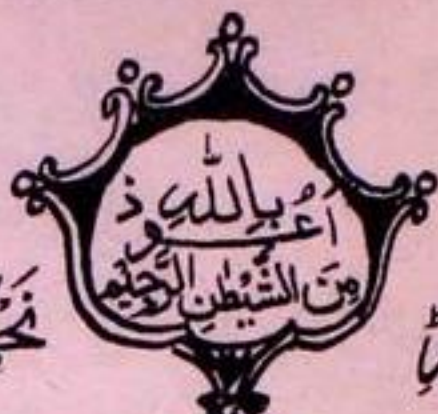 اَعُوذُ بِاللّٰهِ
مِنَ الشَّيْطٰنِ الرَّجِيْمِ